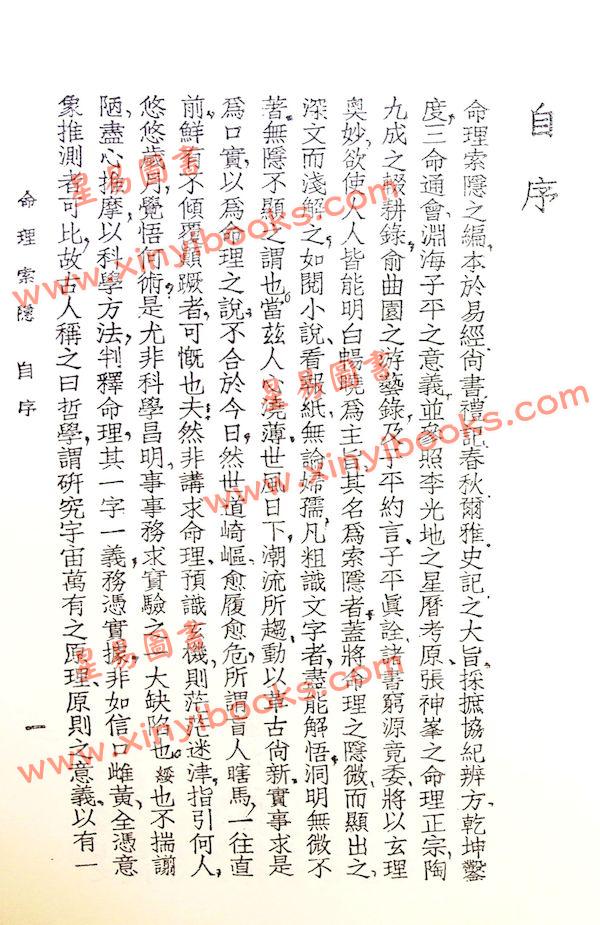 自序
命理索隱之編、本於易經尚書禮記春秋爾雅史記之大旨、採摭協紀辨方、乾坤鑿
度、三命通會、淵海子平之意義、並參照李光地之星曆考原、張神峯之命理正宗、陶
九成之輟耕錄、俞曲園之游藝錄、及子平約言、子平眞詮諸書、窮源竟委、將以玄理
奧妙、欲使人人皆能明白暢曉爲主旨、其名爲索隱者、蓋將命理之隱微、而顯出之、
深文而淺解之、如閱小說、看報紙、無論婦孺、凡粗識文字者、盡能解悟、洞明無微不
著、無隱不顯之謂也、當茲人心澆薄、世風日下、潮流所趨、動以革古尚新、實事求是
爲口實、以爲命理之說、不合於今日、然世值崎嶇、愈履愈危、所謂盲人瞎馬、一往直
前、鮮有不傾覆顚蹶者、可慨也夫、然非講求命理、預識玄機、則茫茫迷津、指引何人、
悠悠歲月、覺悟何術、是尤非科學昌明、事事務求實驗之一大缺陷也、綏也不揣謭
陋、盡心揣摩、以科學方法、判釋命理、其一字一義、務憑實據、非如信口雌黃、全憑意
象推測者可比、故古人稱之曰哲學、謂硏究宇宙萬有之原理、原則之意義、以有一
命理索隱 自序
一
星易圖書
www.xinyibooks.com
星易圖書
www.xinyibooks.com
星易圖書
www.xinyibooks.com
星易圖書
www.xinyibooks.com